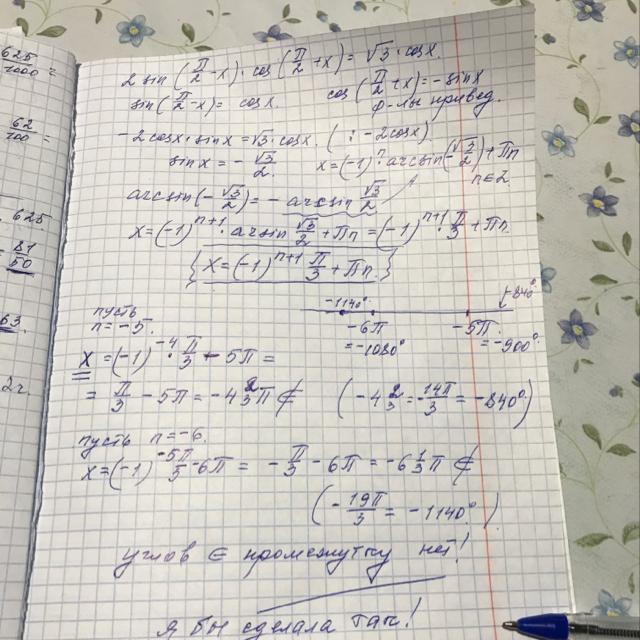 625
1000 =
62
100 =
. 625
= 81
50
63.
2г.
2 sin (π/2 - x) · cos (π/2 + x) = √3 · cosx.
sin(π/2 - x) = cosx. cos(π/2 + x) = - sinx
ф-лы привед.
-2cosx · sinx = √3 · cosx. ( : -2cosx)
sinx = - √3/2. x = (-1)ⁿ · arcsin(-√3/2) + πn
n∈Z
arcsin(-√3/2) = - arcsin √3/2
x = (-1)ⁿ⁺¹ · arcsin √3/2 + πn = (-1)ⁿ⁺¹ · π/3 + πn.
{ x = (-1)ⁿ⁺¹ π/3 + πn }
-1140° -840°
-6π -5π
= -1080° = -900°
пусть
n = -5.
x = (-1)⁻⁴ · π/3 - 5π =
= π/3 - 5π = -4 2/3 π ∉ (-4 2/3 = 14π/3 = -840°)
пусть n = -6.
x = (-1)⁻⁵ π/3 - 6π = - π/3 - 6π = -6 1/3 π ∉
(- 19π/3 = -1140°)
углов ∈ промежутку нет!
я бы сделала так!